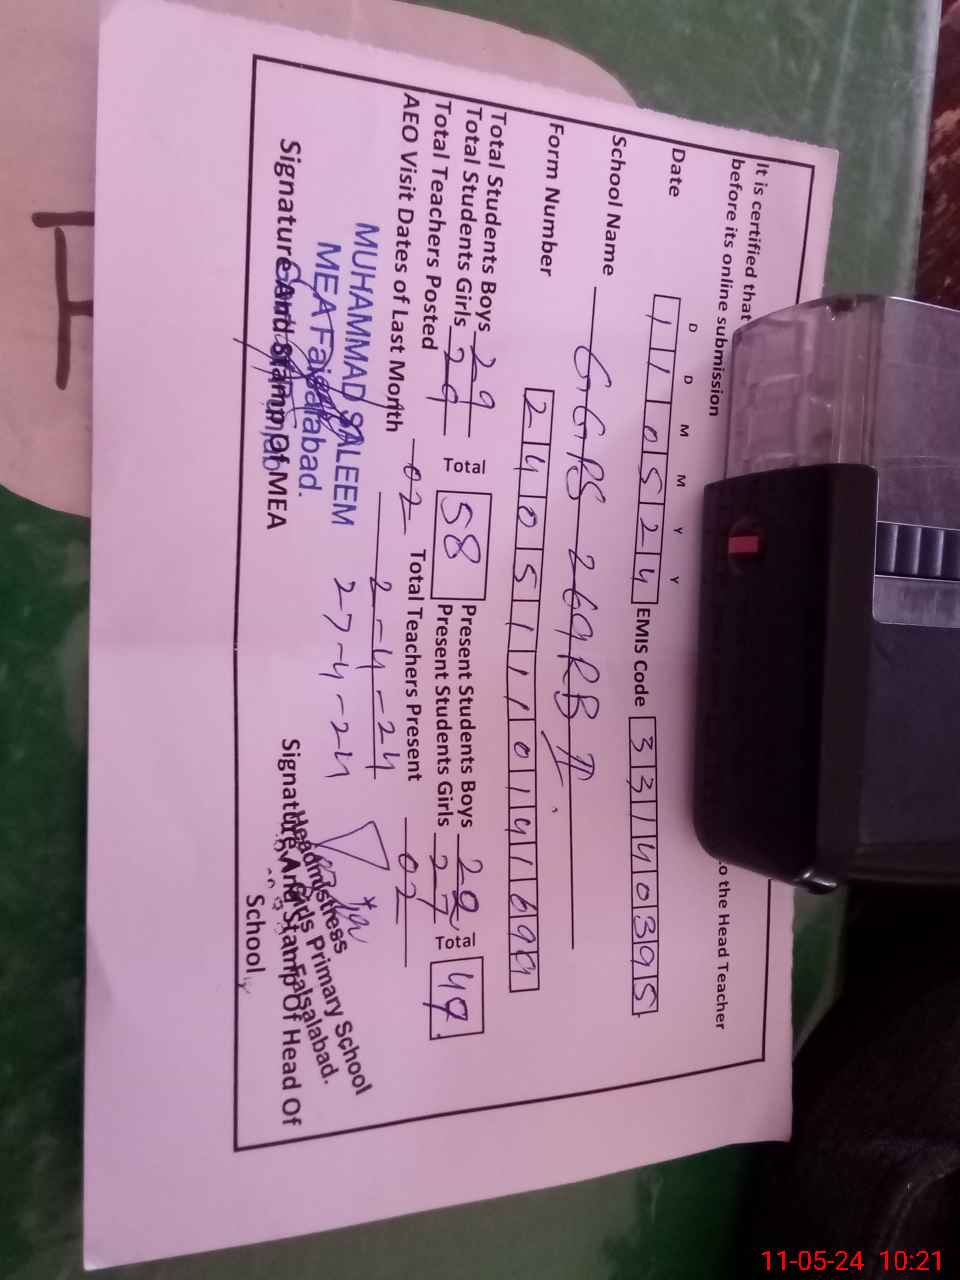 It is certified that
o the Head Teacher
before its online submission
D D M M Y Y
Date 1 1 0 5 2 4 EMIS Code 3 3 1 4 0 3 9 5
School Name GGPS 269RB II
Form Number 2 4 0 5 1 1 1 0 1 4 1 6 9 9
Total Students Boys 29 Total 58 Present Students Boys Total 49
Total Students Girls 29 Present Students Girls 27
Total Teachers Posted 02 Total Teachers Present 02
AEO Visit Dates of Last Month 2-4-24
27-4-24
MUHAMMAD SALEEM
MEA Faisalabad.
Signature And Stamp Of MEA
Headmistress
Girls Primary School
Faisalabad.
Signature And Stamp Of Head Of
School
H
11-05-24 10:21